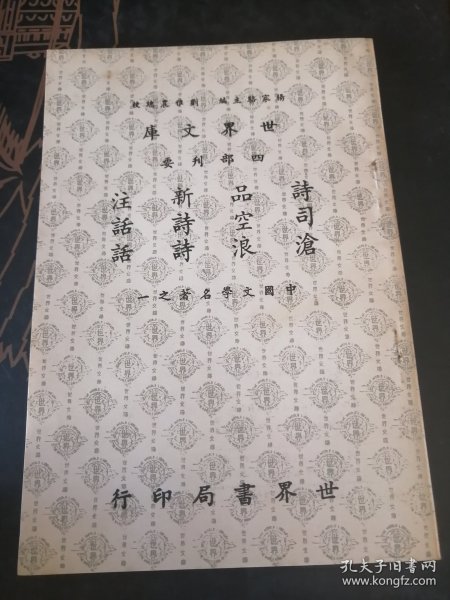 楊家駱主編 劉雅農總校
世界文庫
四部刊要
詩品新注
司空詩話
滄浪詩話
中國文學名著之一
世界書局印行
孔夫子旧书网
www.kongfz.com